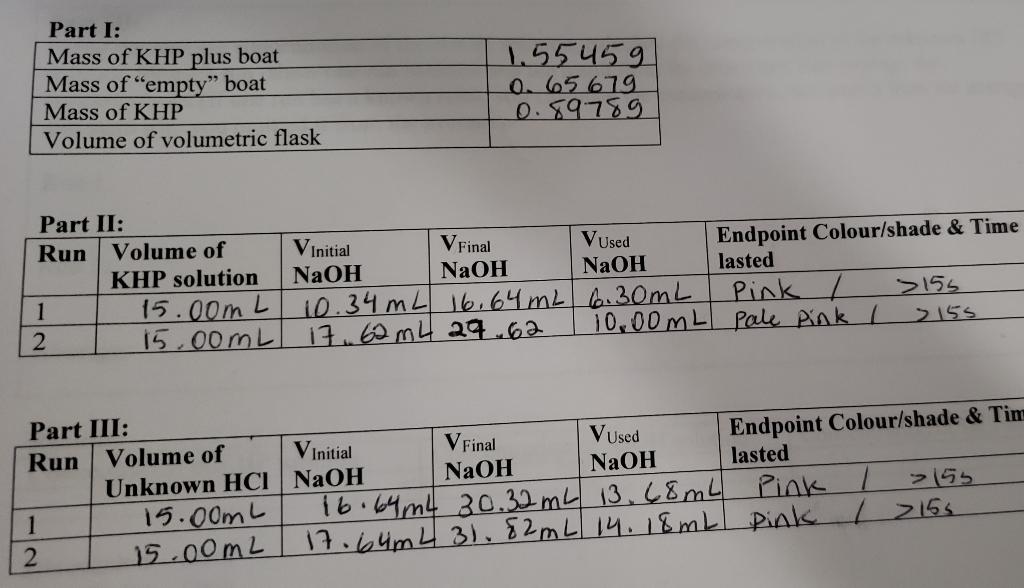 Part I:
Mass of KHP plus boat 1.5545g
Mass of “empty” boat 0.6567g
Mass of KHP 0.8978g
Volume of volumetric flask
Part II:
Run Volume of KHP solution VInitial NaOH VFinal NaOH VUsed NaOH Endpoint Colour/shade & Time lasted
1 15.00mL 10.34mL 16.64mL 6.30mL Pink / >15s
2 15.00mL 17.62mL 27.62 10.00mL Pale pink / >15s
Part III:
Run Volume of Unknown HCl VInitial NaOH VFinal NaOH VUsed NaOH Endpoint Colour/shade & Tim lasted
1 15.00mL 16.64mL 30.32mL 13.68mL Pink / >15s
2 15.00mL 17.64mL 31.82mL 14.18mL pink / >15s